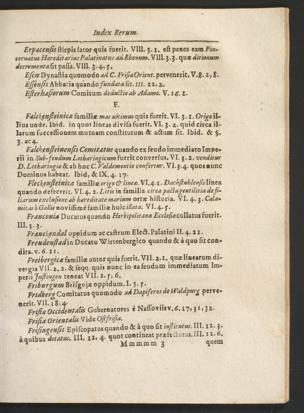 Index Rerum.
Erpacensis stirpis sator quis fuerit. VIII. 3. 1. est penes eam Pin-
cernatus Hereditarius Palatinatus ad Rhenum. VIII. 3. 3. quæ ditionum
decrementa sit passa. VIII. 3. 4. 5.
Esen Dynastia quomodo ad C. Frisiæ Orient. pervenerit. V. 8. 2, 8.
Essensis Abbatia quando fundata sit. III. 22. 2.
Esterhasiorum Comitum deductio ab Adamo. V. 16. 1.
F.
Falckensteinicæ familiæ mas ultimus quis fuerit. VI. 3. 1. Origo il-
lius unde. Ibid. in quot lineas divisa fuerit. VI. 3. 2. quid circa il-
larum successionem mutuam constitutum & actum sit. Ibid. & §.
3. ac 4.
Falckensteinensis Comitatus quando ex feudo immediato Impe-
rii in Sub-feudum Lotharingicum fuerit conversus. VI. 3. 2. venditur
D. Lotharingiæ & ab hoc C. Valdemontio confertur. VI. 3. 4. quos nunc
Dominos habeat. Ibid, & IX, 4. 17.
Fleckensteinica familiæ origo & lineæ. VI. 4. 1. Dachstuhlensis linea
quando defecerit. VI. 4. 2. Litis in familia circa pallagentilitia de fi-
liarum exclusione ab hereditate marium ortæ historia. VI. 4. 3. Cala-
mitas à Gallis novissimè familiæ huic illata. VI. 4. 5.
Franconiæ Ducatus quando Herbipolitanæ Ecclesiæ collatus fuerit.
III. 3. 3.
Francendal oppidum at castrum Elect. Palatini II. 4. 22.
Freudenstad in Ducatu Wirtenbergico quando & à quo sit con-
dita. v. 6. 11.
Freibergicæ familiæ autor quis fuerit. VII. 2. 1, quæ linearum di-
vergia VII. 2. 2. & seqq. quis nunc in ea feudum immediatum Im-
perii Justingen teneat VII. 2. 5. 6,
Friburgum Brisgoiæ oppidum. I. 5. 5.
Fridberg Comitatus quomodo ad Dapiferos de Waldpurg perve-
nerit. VII. 18. 4.
Frisiæ Occidentalis Gubernatores è Nassoviis v. 6. 17, 31. 32.
Frisia Orientalis Vide Ostfrisia.
Frisingensis Episcopatus quando & à quo sit institutus. III. 12. 3.
à quibus dotatus. III. 12. 4. quot contineat præfecturas. III. 12. 6,
Mmmmm 3 quem